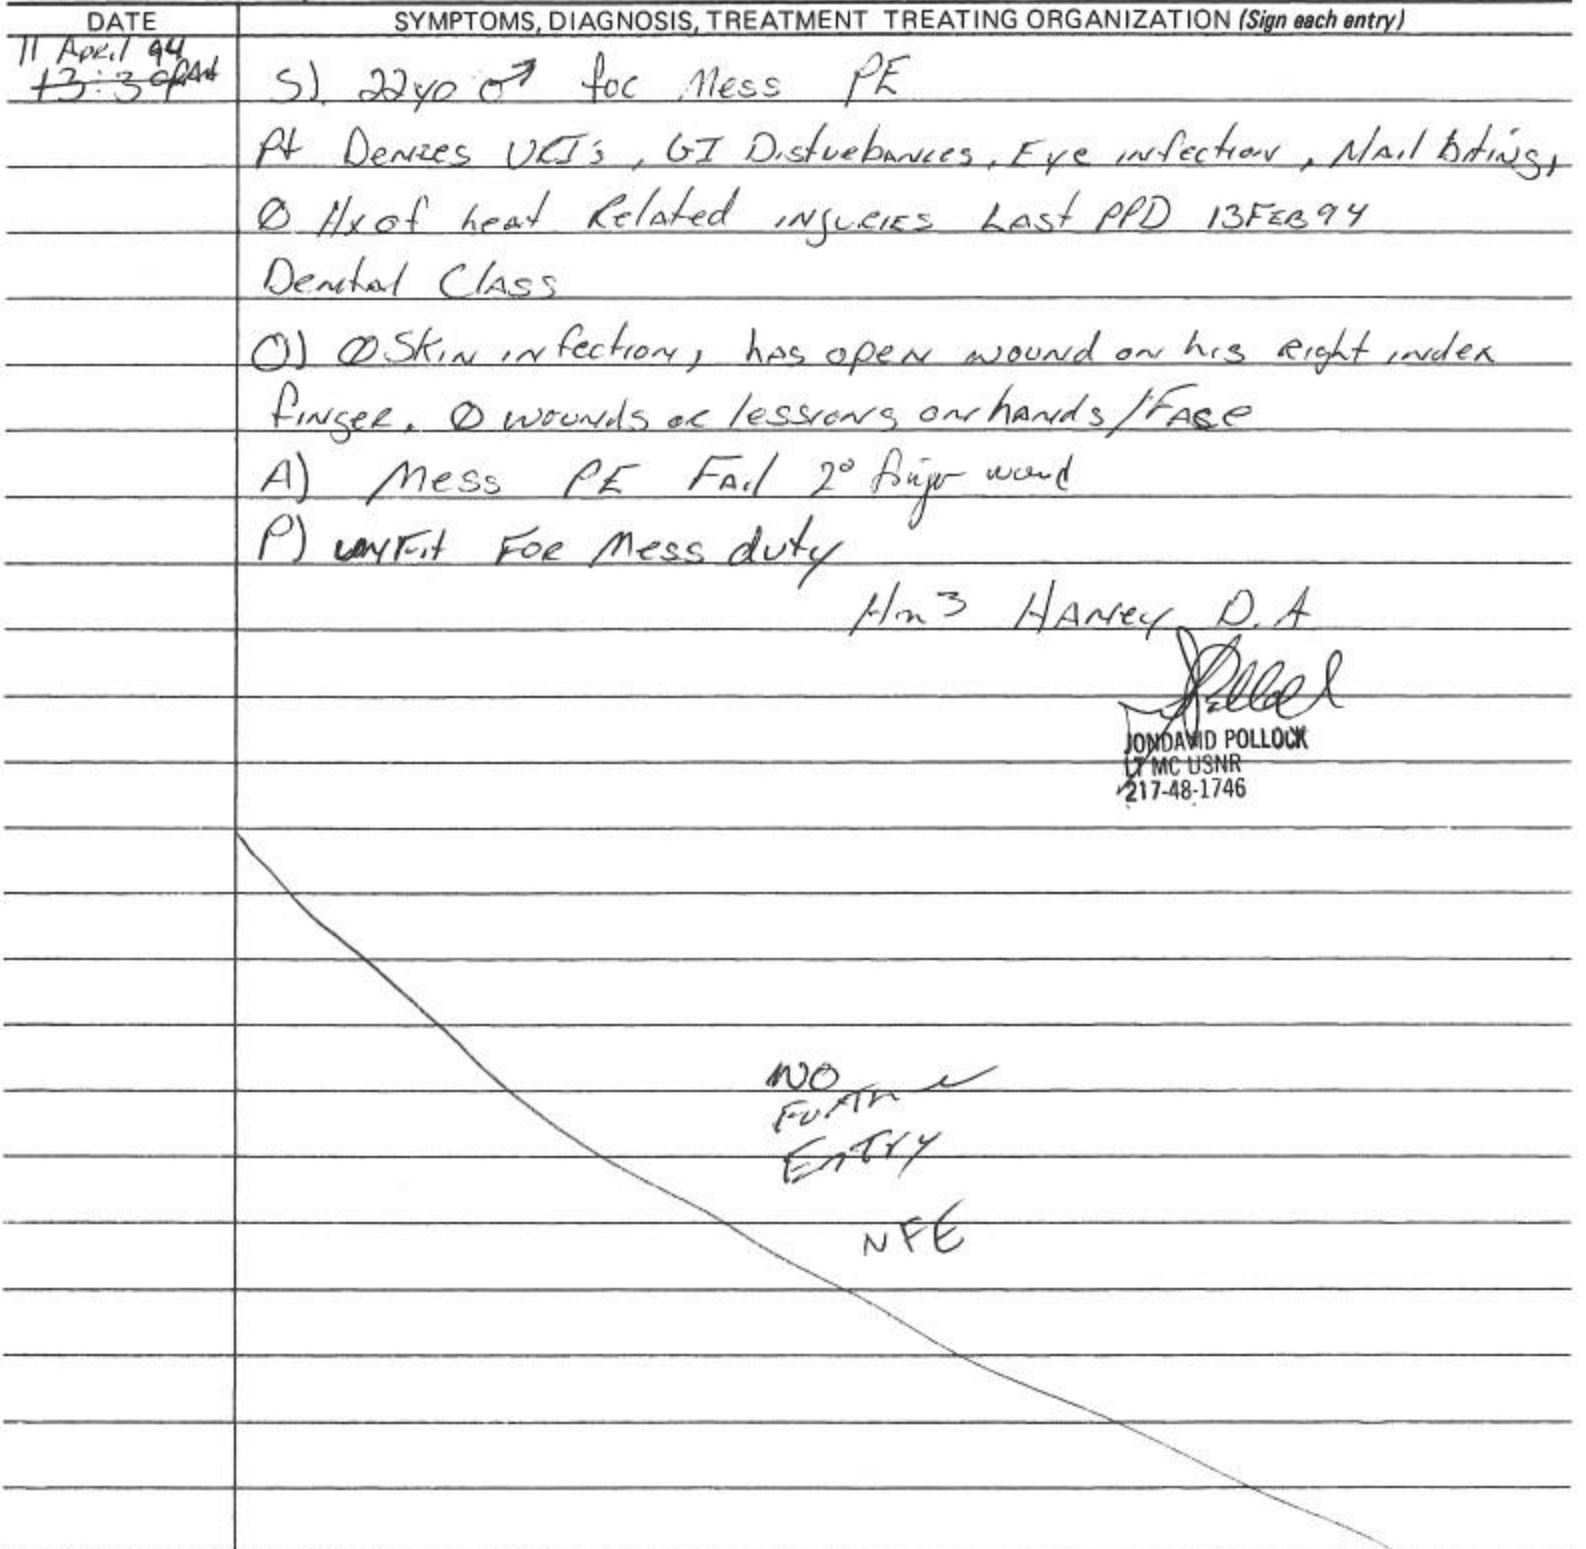 DATE SYMPTOMS, DIAGNOSIS, TREATMENT TREATING ORGANIZATION (Sign each entry)
11 April 94
13:30
S). 22yo ♂ for Mess PE
Pt Denies URI's, GI Disturbances, Eye infection, Nail biting,
Ø Hx of heat Related injuries Last PPD 13FEB94
Denital Class
O) Ø Skin infection, has open wound on his right index
finger. Ø wounds or lessions on hands/Face
A) Mess PE Fail 2° finger wound
P) unFit For Mess duty
Hm3 Haney D.A
JONDAVID POLLOCK
LT MC USNR
217-48-1746
NO
Further
Entry
NFE